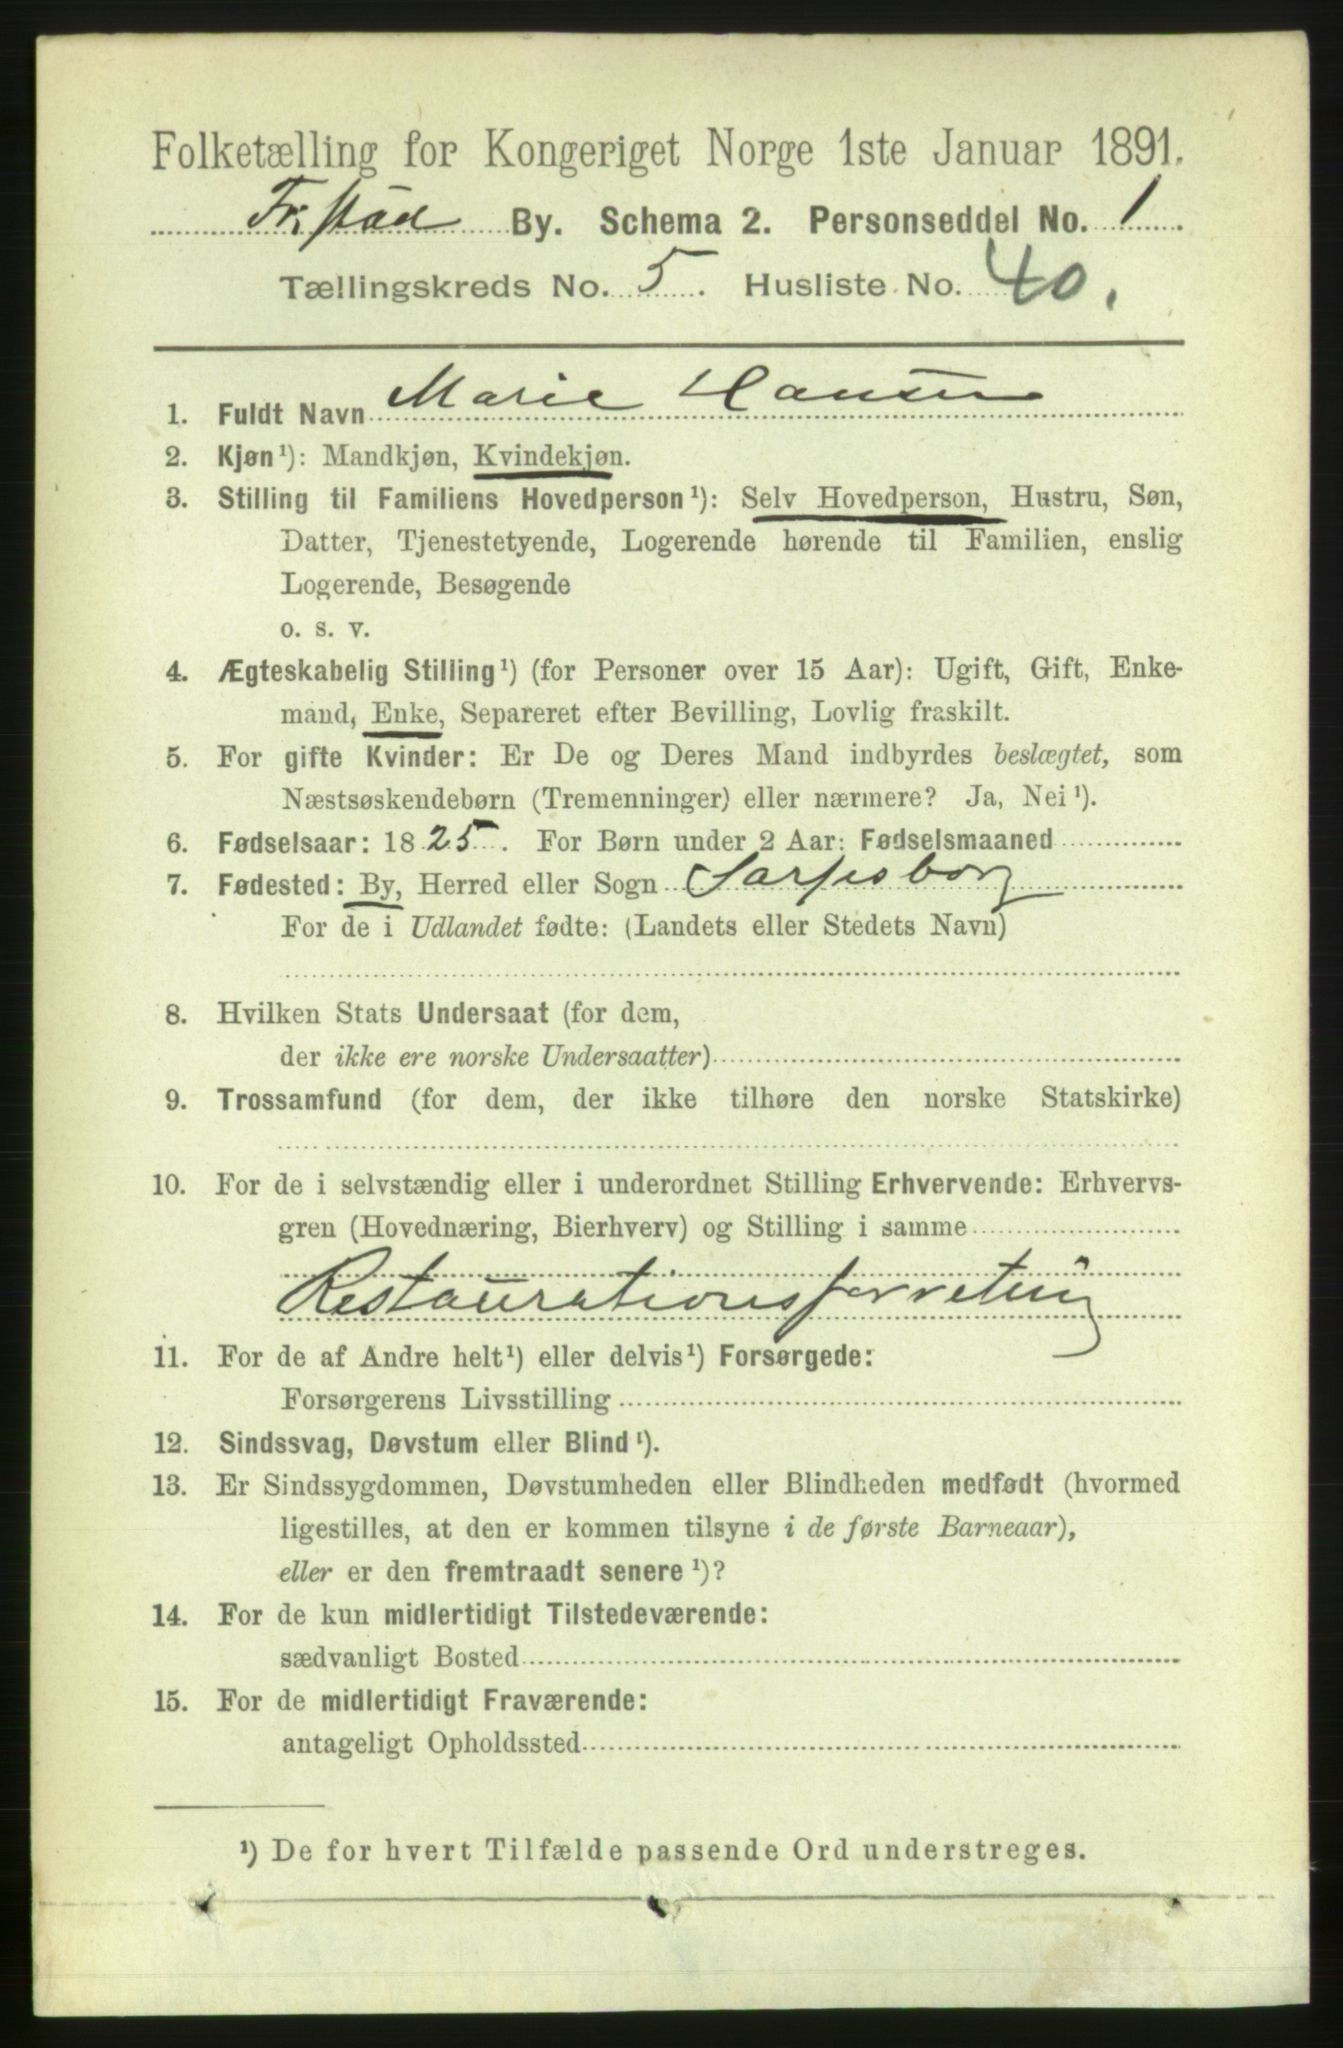 Folketælling for Kongeriget Norge 1ste Januar 1891.
Fr.stad By. Schema 2. Personseddel No. 1
Tællingskreds No. 5. Husliste No. 40.
1. Fuldt Navn Marie Hansen
2. Kjøn¹): Mandkjøn, Kvindekjøn.
3. Stilling til Familiens Hovedperson¹): Selv Hovedperson, Hustru, Søn,
Datter, Tjenestetyende, Logerende hørende til Familien, enslig
Logerende, Besøgende
o. s. v.
4. Ægteskabelig Stilling¹) (for Personer over 15 Aar): Ugift, Gift, Enke-
mand, Enke, Separeret efter Bevilling, Lovlig fraskilt.
5. For gifte Kvinder: Er De og Deres Mand indbyrdes beslægtet, som
Næstsøskendebørn (Tremenninger) eller nærmere? Ja, Nei¹).
6. Fødselsaar: 1825. For Børn under 2 Aar: Fødselsmaaned
7. Fødested: By, Herred eller Sogn Sarpsborg
For de i Udlandet fødte: (Landets eller Stedets Navn)
8. Hvilken Stats Undersaat (for dem,
der ikke ere norske Undersaatter)
9. Trossamfund (for dem, der ikke tilhøre den norske Statskirke)
10. For de i selvstændig eller i underordnet Stilling Erhvervende: Erhvervs-
gren (Hovednæring, Bierhverv) og Stilling i samme
Restaurationsforretning
11. For de af Andre helt¹) eller delvis¹) Forsørgede:
Forsørgerens Livsstilling
12. Sindssvag, Døvstum eller Blind¹).
13. Er Sindssygdommen, Døvstumheden eller Blindheden medfødt (hvormed
ligestilles, at den er kommen tilsyne i de første Barneaar),
eller er den fremtraadt senere¹)?
14. For de kun midlertidigt Tilstedeværende:
sædvanligt Bosted
15. For de midlertidigt Fraværende:
antageligt Opholdssted
¹) De for hvert Tilfælde passende Ord understreges.